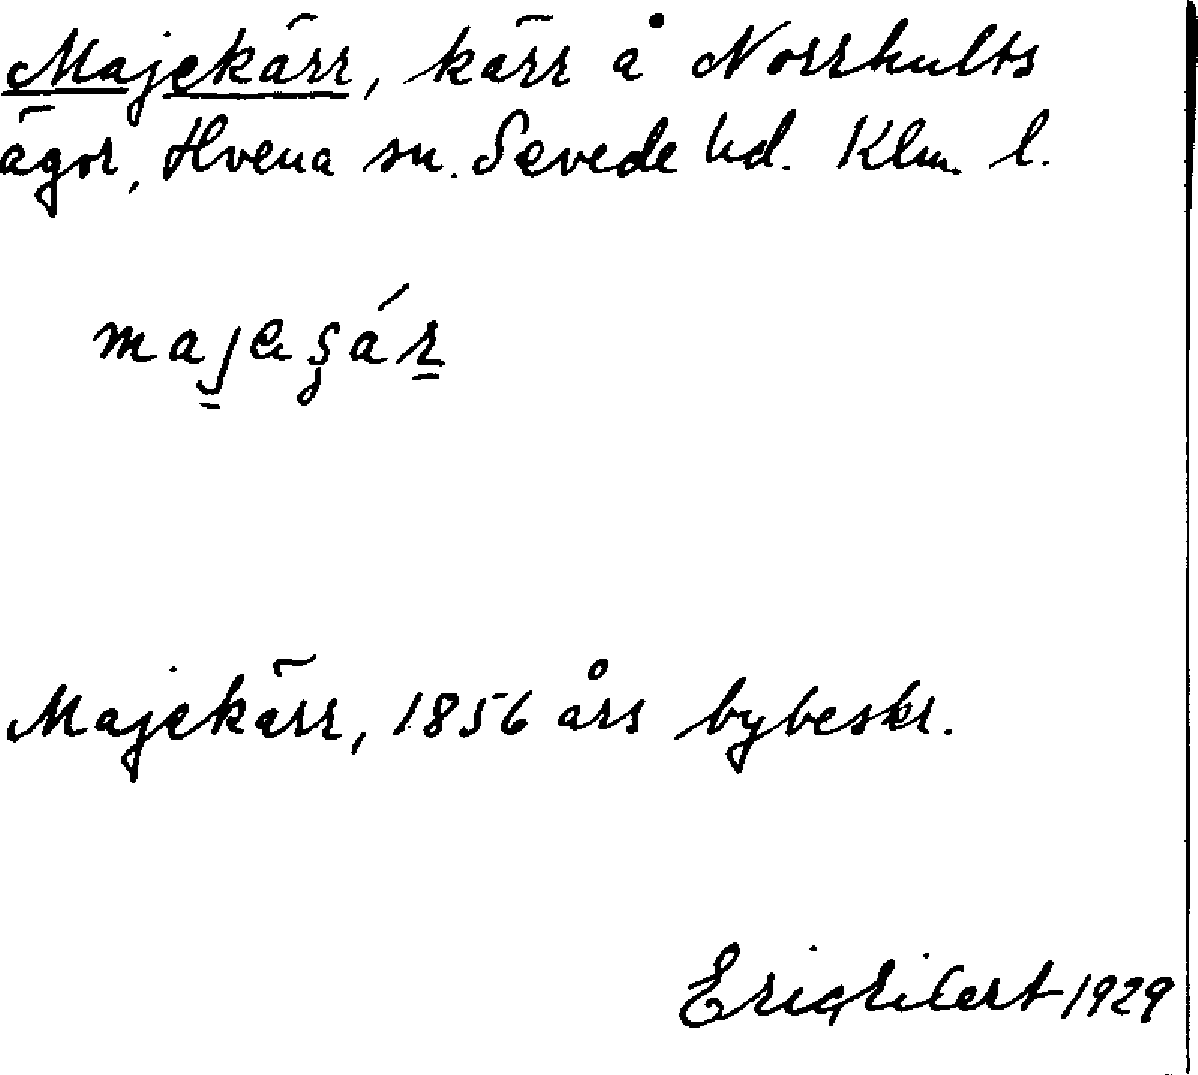 Majekärr, kärr å Norrhults
ägor, Hvena sn. Sevede hd. Klm. l.
Majekärr, 1856 års bybeskr.
1929